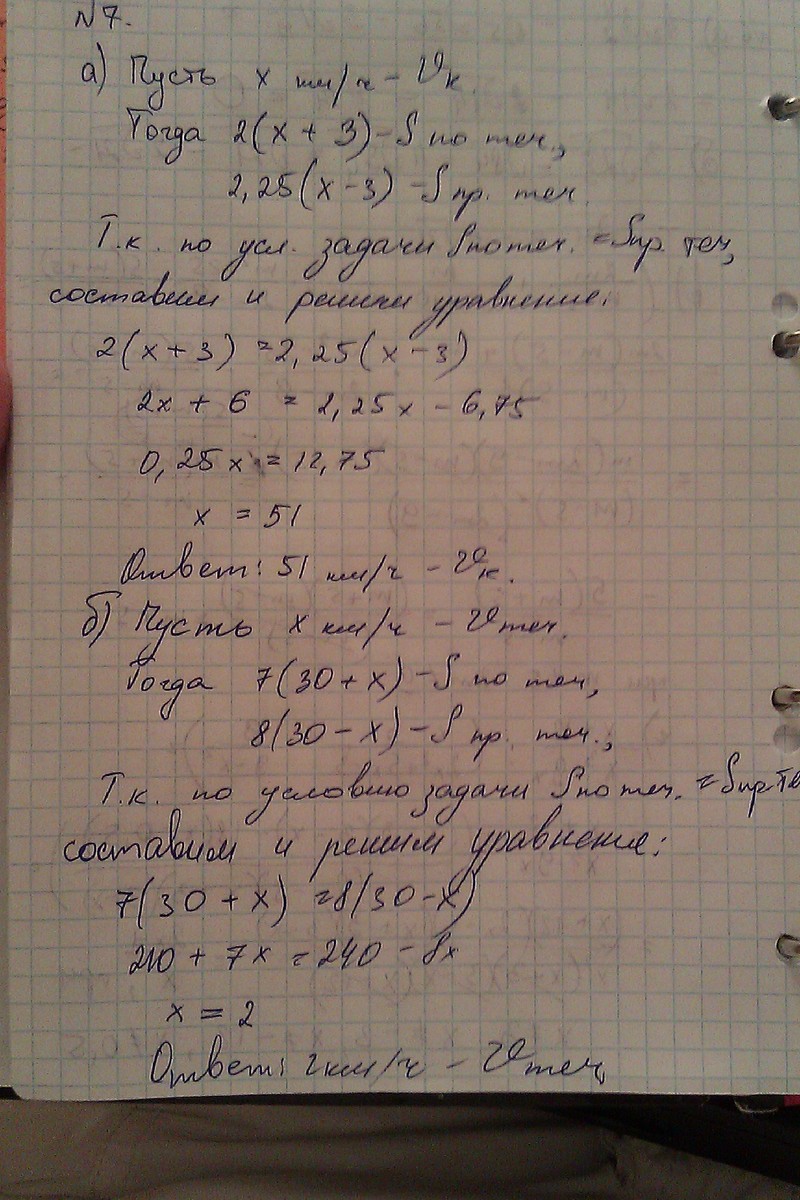 N 7.
а) Пусть x км/ч - Vк.
Тогда 2(x + 3) - S по теч.,
2,25(x - 3) - S пр. теч.
Т.к. по усл. задачи S по теч. = S пр. теч,
составим и решим уравнение:
2(x + 3) = 2,25(x - 3)
2x + 6 = 2,25x - 6,75
0,25x = 12,75
x = 51
Ответ: 51 км/ч - Vк.
б) Пусть x км/ч - Vтеч.
Тогда 7(30 + x) - S по теч,
8(30 - x) - S пр. теч.,
Т.к. по условию задачи S по теч. = S пр те
составим и решим уравнение:
7(30 + x) = 8(30 - x)
210 + 7x = 240 - 8x
x = 2
Ответ: 2 км/ч - Vтеч.